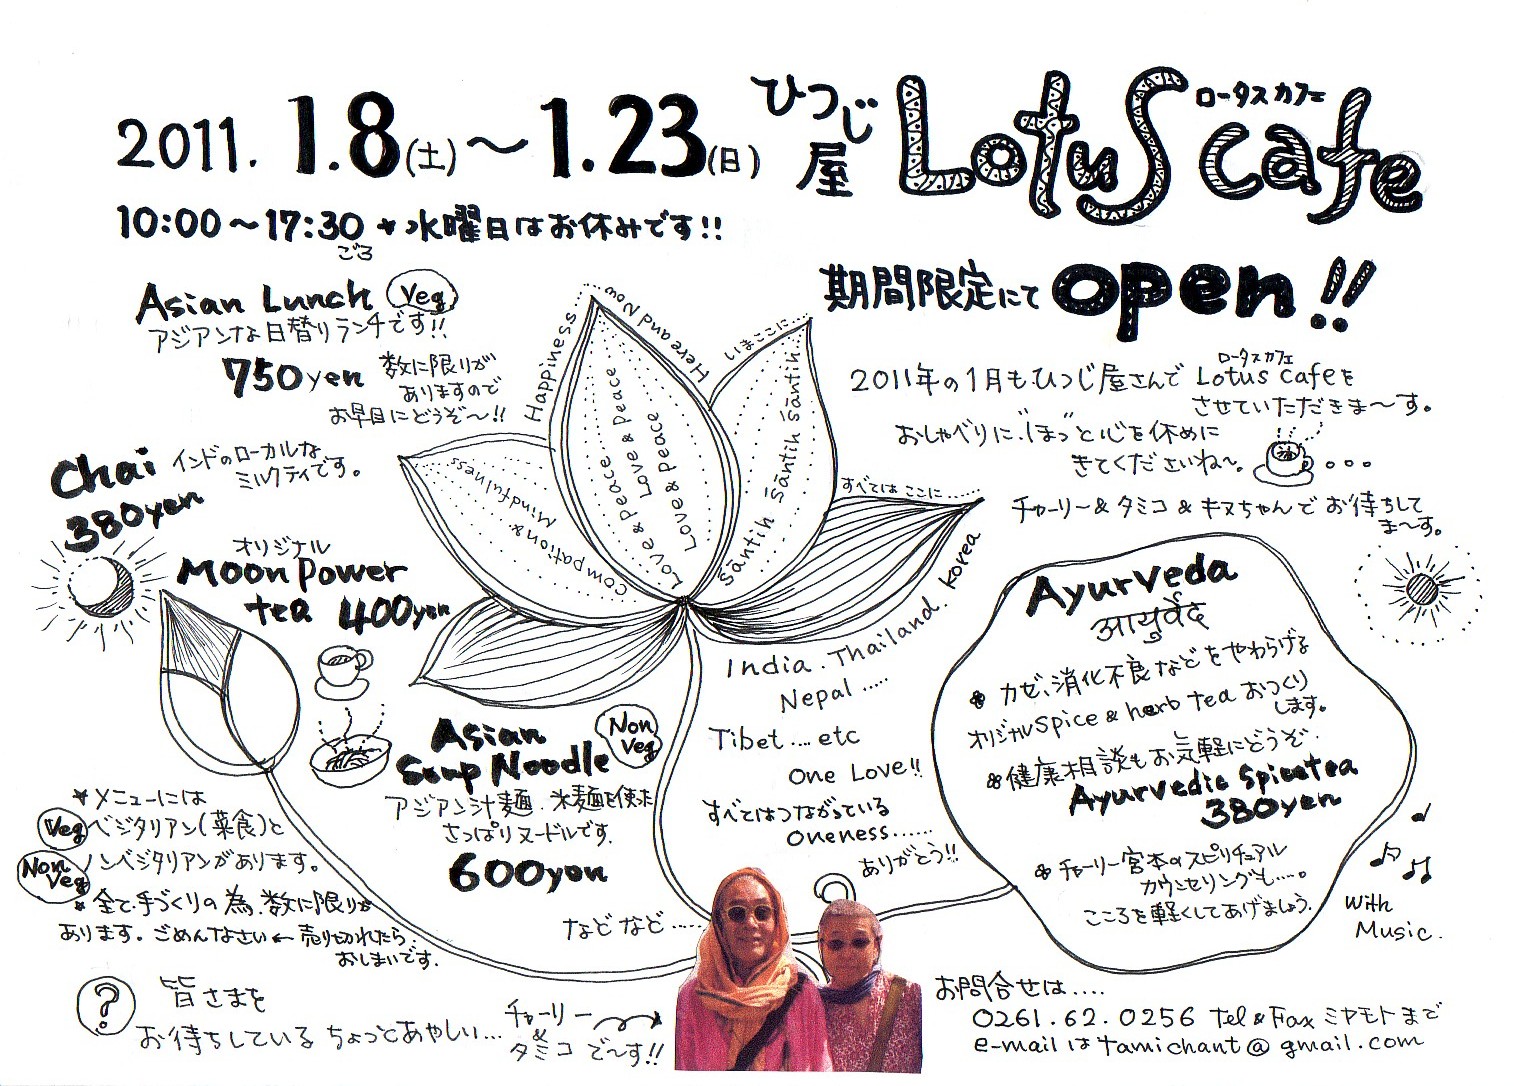 2011. 1.8(土)〜1.23(日)
10:00〜17:30 ✦水曜日はお休みです!!
ごろ
ひつじ屋
ロータスカフェ
Lotus cafe
期間限定にて open!!
Asian Lunch Veg
アジアンな日替りランチです!!
750yen 数に限りが
ありますので
お早目にどうぞ〜!!
Chai インドのローカルな
ミルクティです。
380yen
オリジナル
Moon Power
tea 400yen
Happiness......
Here and Now
いまここに......
すべてはここに......
Compation &
Mindfulness
Love & Peace Love & Peace
Love & Peace
Love & Peace
Sāntih Sāntih Sāntih
2011年の1月も、ひつじ屋さんで
ロータスカフェ
Lotus cafeを
させていただきま〜す。
おしゃべりに、"ほっ"と心を休めに
きてくださいね〜。
チャーリー&タミコ&キヌちゃんでお待ちして
ま〜す。
India. Thailand. Korea
Nepal.....
Tibet....etc
One Love!!
すべてはつながっている
Oneness......
ありがとう!!
Asian
Soup Noodle Non Veg
アジアン汁麺、米麺を使った
さっぱりヌードルです。
600yen
などなど......
Ayurveda
आयुर्वेद
カゼ、消化不良などをやわらげる
オリジナルspice & herb tea おつくり
します。
健康相談もお気軽にどうぞ.
Ayurvedic Spicetea
380yen
チャーリー宮本のスピリチュアル
カウンセリングも....。
こころを軽くしてあげましょう.
With
Music.
メニューには
Veg ベジタリアン(菜食)と
Non Veg ノンベジタリアンがあります。
全て手づくりの為、数に限りが
あります。ごめんなさい←売り切れたら
おしまいです.
? 皆さまを
お待ちしているちょっとあやしい...
チャーリー
&
タミコ で〜す!!
お問合せは....
0261.62.0256 tel & Fax ミヤモトまで
e-mailは tamichant@gmail.com